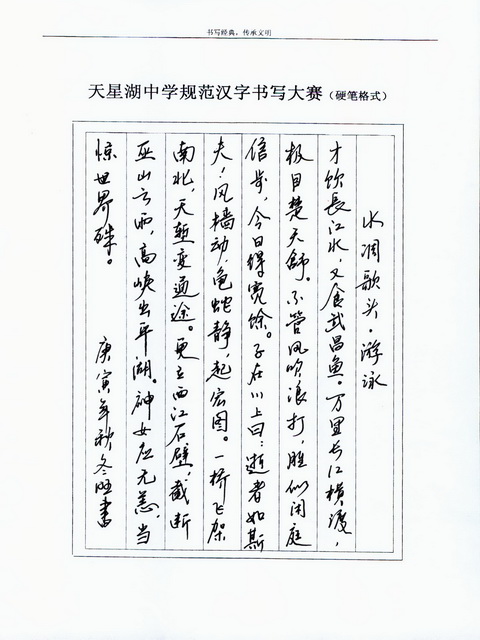 书写经典，传承文明
天星湖中学规范汉字书写大赛（硬笔格式）
水调歌头·游泳
才饮長江水，又食武昌鱼。万里长江横渡，
极目楚天舒。不管风吹浪打，胜似闲庭
信步，今日得宽馀。子在川上曰：逝者如斯
夫！风樯动，龟蛇静，起宏图。一桥飞架
南北，天堑变通途。更立西江石壁，截断
巫山云雨，高峡出平湖。神女应无恙，当
惊世界殊。 庚寅年秋冬旺書